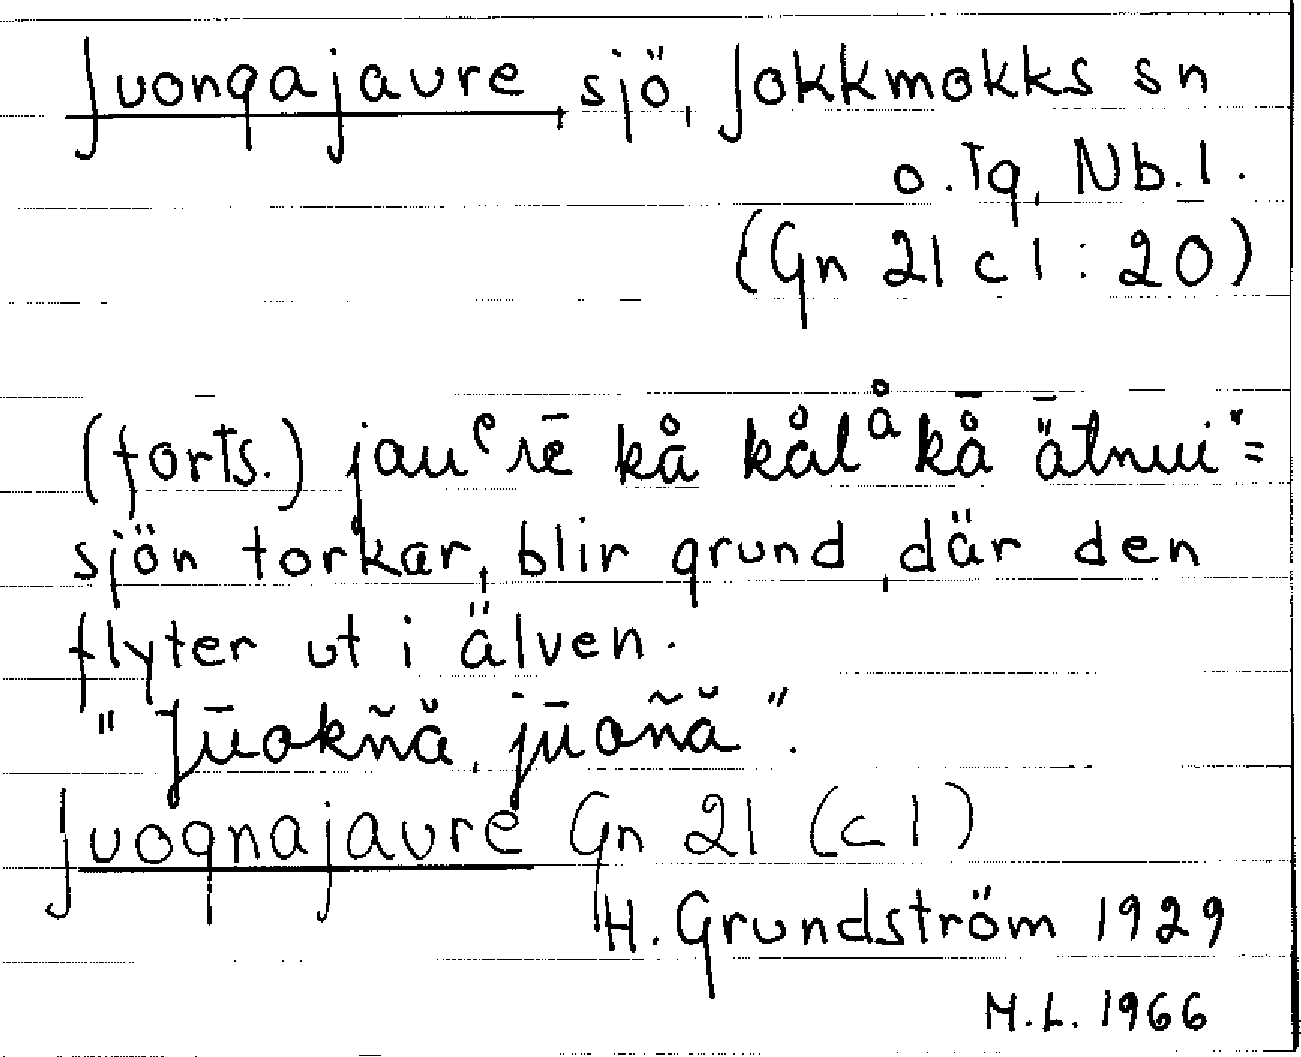 Juongajaure, sjö, Jokkmokks sn
o. Tg, Nb. l.
(Gn 21 c 1 : 20)
(forts.) jauᵉrē kå kål å̊ kå̄ ǟtnui" =
sjön torkar, blir grund, där den
flyter ut i älven.
" Jūokñă, jūoñă".
Juognajaure Gn 21 (c 1)
H. Grundström 1929
M.L. 1966